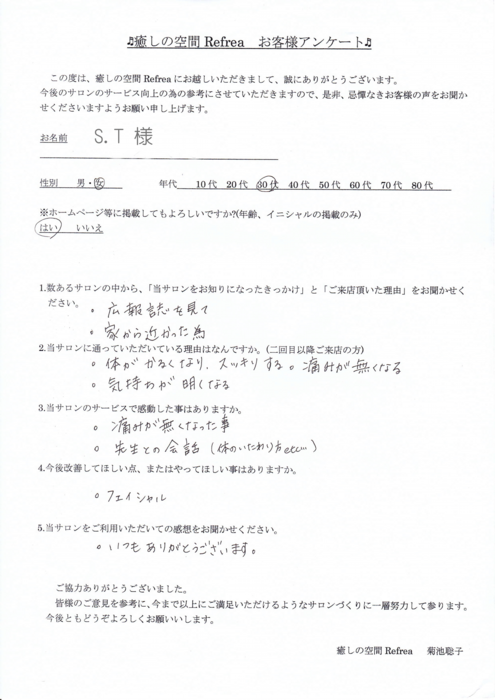 ♫癒しの空間 Refrea　お客様アンケート♫
この度は、癒しの空間 Refrea にお越しいただきまして、誠にありがとうございます。
今後のサロンのサービス向上の為の参考にさせていただきますので、是非、忌憚なきお客様の声をお聞か
せくださいますようお願い申し上げます。
お名前　S.T 様
性別　男・女　年代　10代　20代　30代　40代　50代　60代　70代　80代
※ホームページ等に掲載してもよろしいですか?(年齢、イニシャルの掲載のみ)
はい　いいえ
1.数あるサロンの中から、「当サロンをお知りになったきっかけ」と「ご来店頂いた理由」をお聞かせく
ださい。
。広報誌を見て
。家から近かった為
2.当サロンに通っていただいている理由はなんですか。(二回目以降ご来店の方)
。体がかるくなり、スッキリする。痛みが無くなる
。気持ちが明くなる
3.当サロンのサービスで感動した事はありますか。
。痛みが無くなった事
。先生との会話（体のいたわり方etc…）
4.今後改善してほしい点、またはやってほしい事はありますか。
。フェイシャル
5.当サロンをご利用いただいての感想をお聞かせください。
。いつもありがとうございます。
ご協力ありがとうございました。
皆様のご意見を参考に、今まで以上にご満足いただけるようなサロンづくりに一層努力して参ります。
今後ともどうぞよろしくお願いいします。
癒しの空間 Refrea　菊池聡子